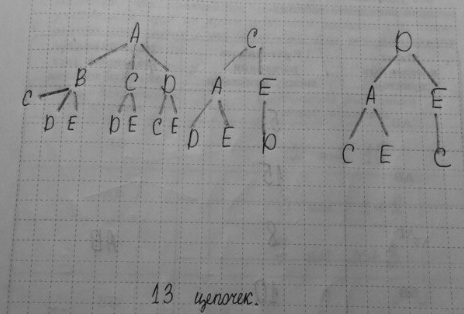 A C D
B C D A E A E
C D E D E C E D E D C E C
13 цепочек.